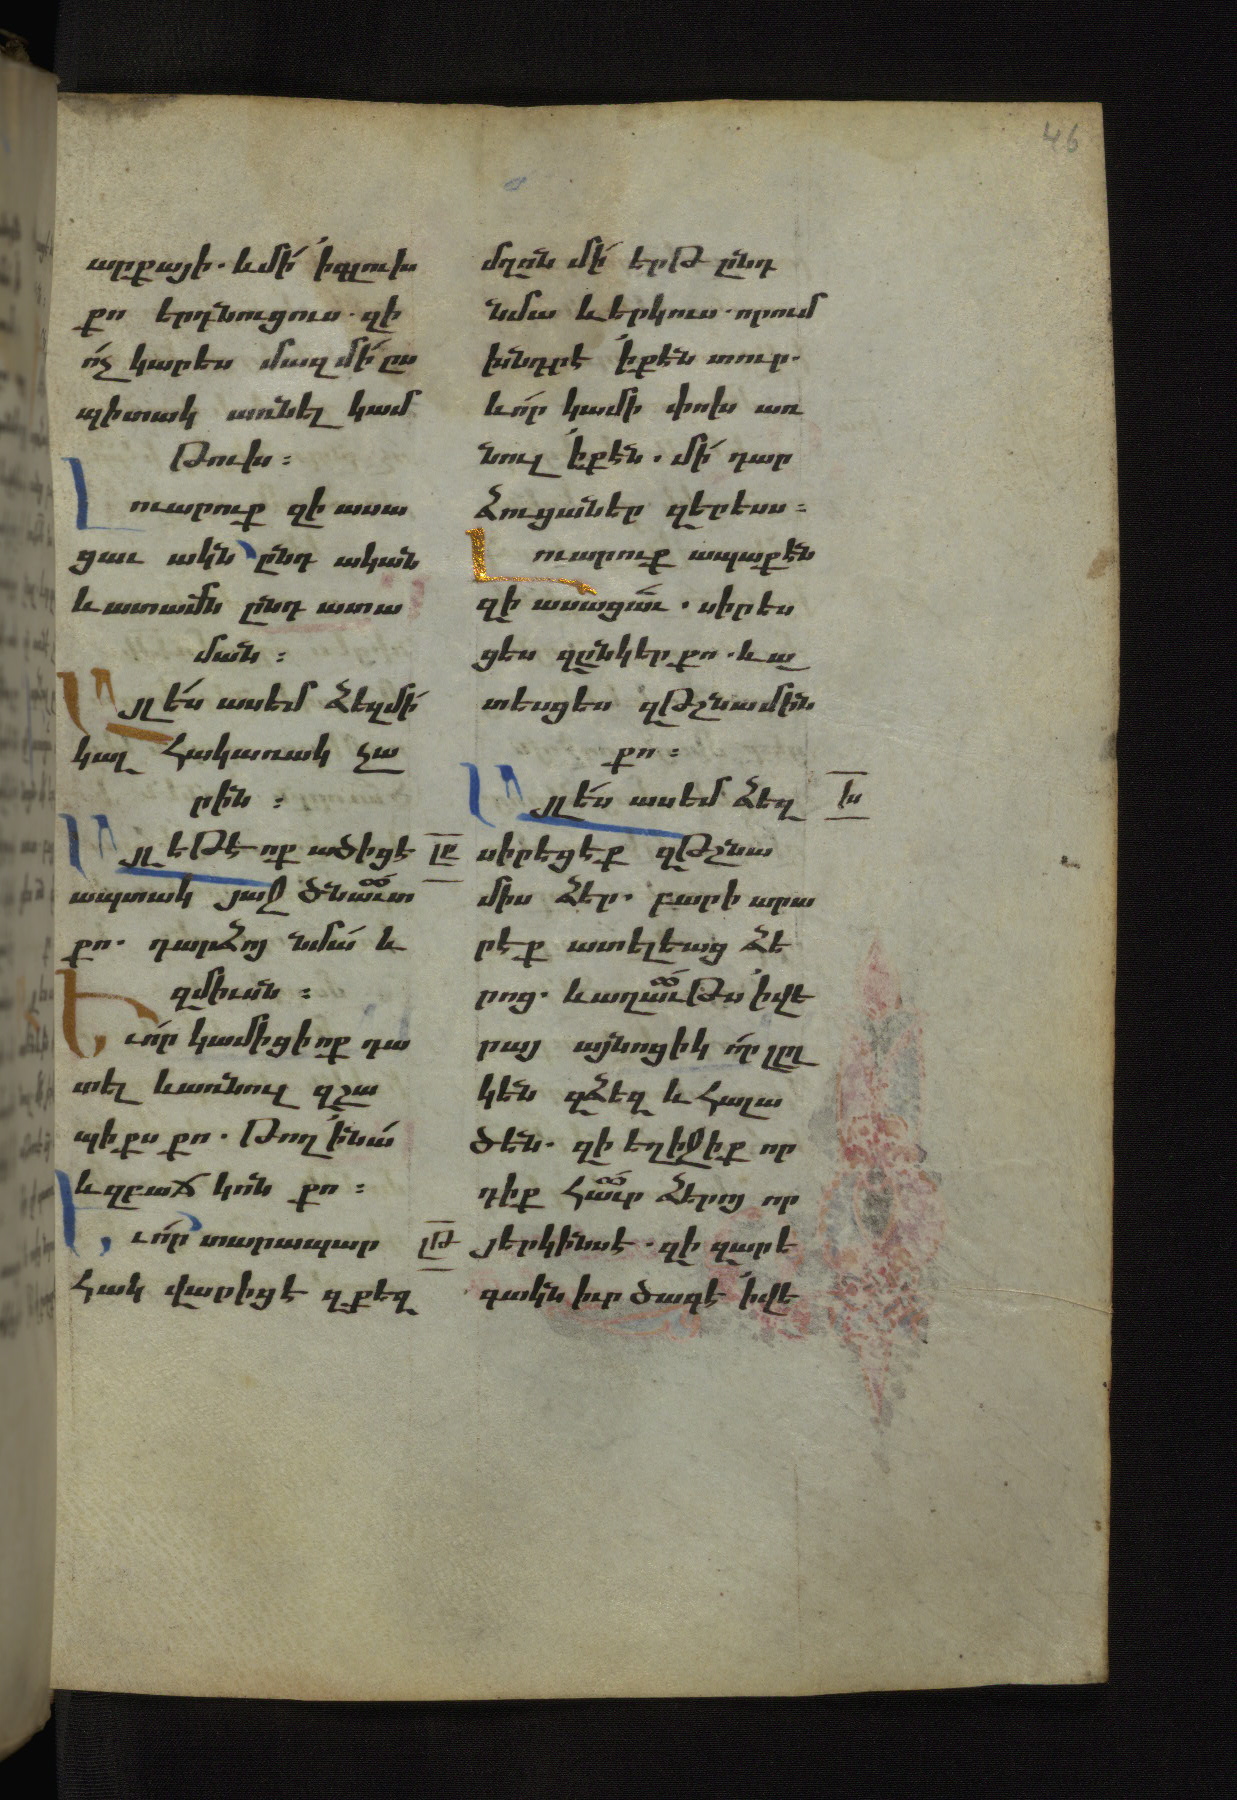 46
արքայի. և մի՛ ՛ի գլուխ
քո երդնուցուս. զի
ո՛չ կարես մազ մի՛ ըս
պիտակ առնել կամ
թուխ։
Լուարուք զի ասա
ցաւ ակն ընդ ական
և ատամն ընդ ատա
ման։
Այլ ե՛ս ասեմ ձեզ մի՛
կալ հակառակ չա
րին։
Այլ եթէ ոք ածիցէ
ապտակ յաջ ծնաւտ
քո. դարձոյ նմա՛ և
զմիւսն։
Եւ ո՛ր կամիցի ոք դա
տել և առնուլ զշա
պիքս քո. թող ՛ի նա՛
և զբաճկոն քո։
Եւ ո՛ր տարապար
հակ վարիցէ զքեզ
լը
լթ
մղոն մի՛ երթ ընդ
նմա և երկուս. որում
խնդրէ ՛ի քէն տուր.
և ո՛ր կամի փոխ առ
նուլ ՛ի քէն. մի՛ դար
ձուցաներ զերեսս։
Լուարուք ապաքէն
զի ասացաւ. սիրես
ցես զընկեր քո. և ա
տեսցես զթշնամին
քո։
Այլ ե՛ս ասեմ ձեզ
խ
սիրեցէք զթշնա
միս ձեր. բարի արա
րէք ատելեաց ձե
րոց. և աղաւթս ՛ի վե
րայ այնոցիկ ո՛ր լըլ
կեն զձեզ և հալա
ծեն. զի եղիջիք որ
դիք հաւր ձերոյ որ
յերկինսէ. զի զարե
գակն իւր ծագէ ՛ի վե